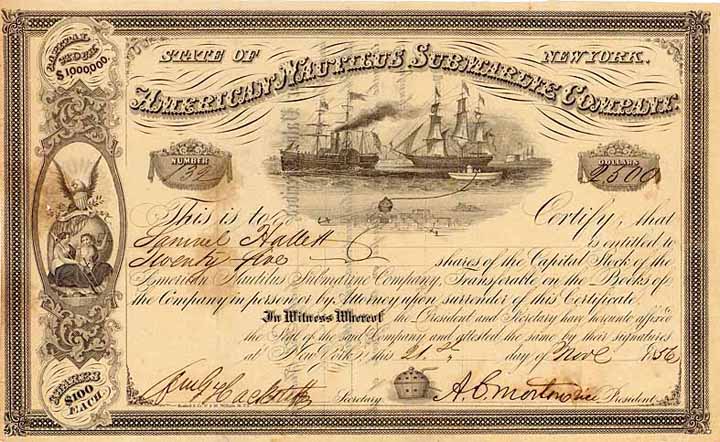 CAPITAL STOCK
$1,000,000.
STATE OF NEW YORK.
AMERICAN NAUTILUS SUBMARINE COMPANY.
NUMBER
139
DOLLARS
2500
This is to Certify, that
Samuel Hallett is entitled to
Twenty five shares of the Capital Stock of the
American Nautilus Submarine Company, Transferable on the Books of
the Company in person or by Attorney upon surrender of this Certificate.
In Witness Whereof the President and Secretary have hereunto affixed
the Seal of the said Company and attested the same by their signatures
at New York, this 21st day of Novr 1856
Secretary. A. C. Morton vice President.
SHARES
$100
EACH.